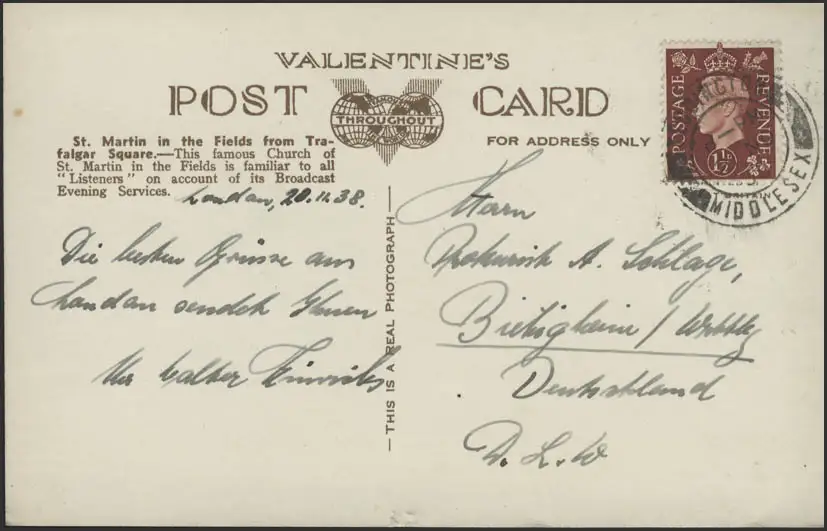 VALENTINE'S
POST CARD
FAMOUS
THROUGHOUT
FOR ADDRESS ONLY
St. Martin in the Fields from Tra-
falgar Square.—This famous Church of
St. Martin in the Fields is familiar to all
"Listeners" on account of its Broadcast
Evening Services.
London, 20.11.38.
Die besten Grüsse aus
London sendet Ihnen
Ihr Walter
THIS IS A REAL PHOTOGRAPH
Herrn
Prokurist A. Schlage,
Bietigheim / Wttbg
Deutschland
POSTAGE
REVENUE
1½ᴰ
MIDDLESEX